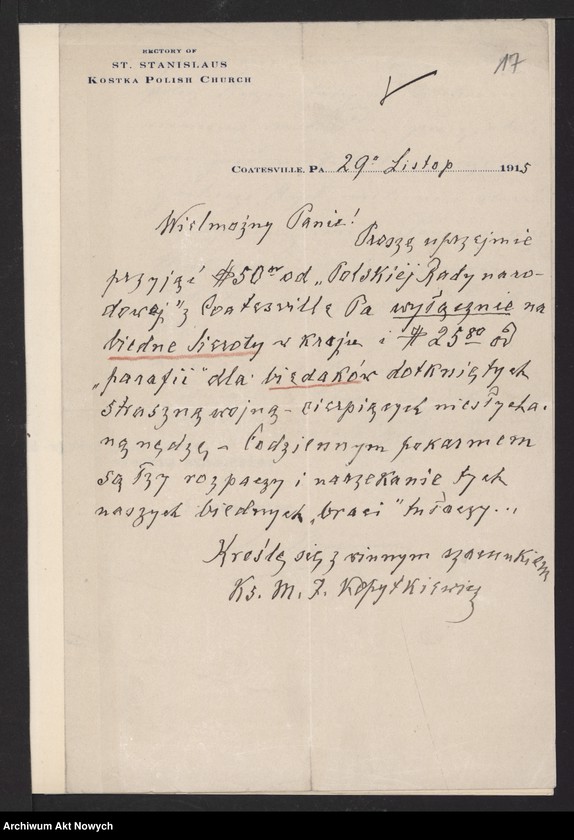 RECTORY OF
ST. STANISLAUS
KOSTKA POLISH CHURCH
17
COATESVILLE, PA. 29º Listop 1915
Wielmożny Panie!
Proszę uprzejmie
przyjąć $50 00 od „Polskiej Rady naro-
dowej" z Coatesville Pa wyłącznie na
biedne sieroty w kraju i $25 80 od
„parafii" dla biedaków dotkniętych
straszną wojną - cierpiących niesłycha-
ną nędzę - Codziennym pokarmem
są łzy rozpaczy i narzekanie tych
naszych biednych „braci" tułaczy...
Kreślę się z winnym szacunkiem
Ks. M. J. Kopytkiewicz
Archiwum Akt Nowych